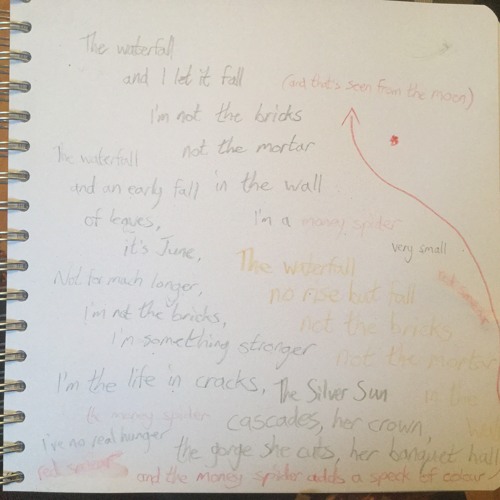 The waterfall
and I let it fall
(and that's seen from the moon)
I'm not the bricks
not the mortar
in the wall
The waterfall
and an early fall
of leaves,
it's June,
Not for much longer,
I'm not the bricks,
I'm something stronger
I'm the life in cracks,
I'm a money spider
very small
red spider
The waterfall
no rise but fall
not the bricks
not the mortar
in the
wall
The Silver Sun
cascades, her crown,
the gorge she cuts, her banquet hall
the money spider
I've no real hunger
red spider
and the money spider adds a speck of colour